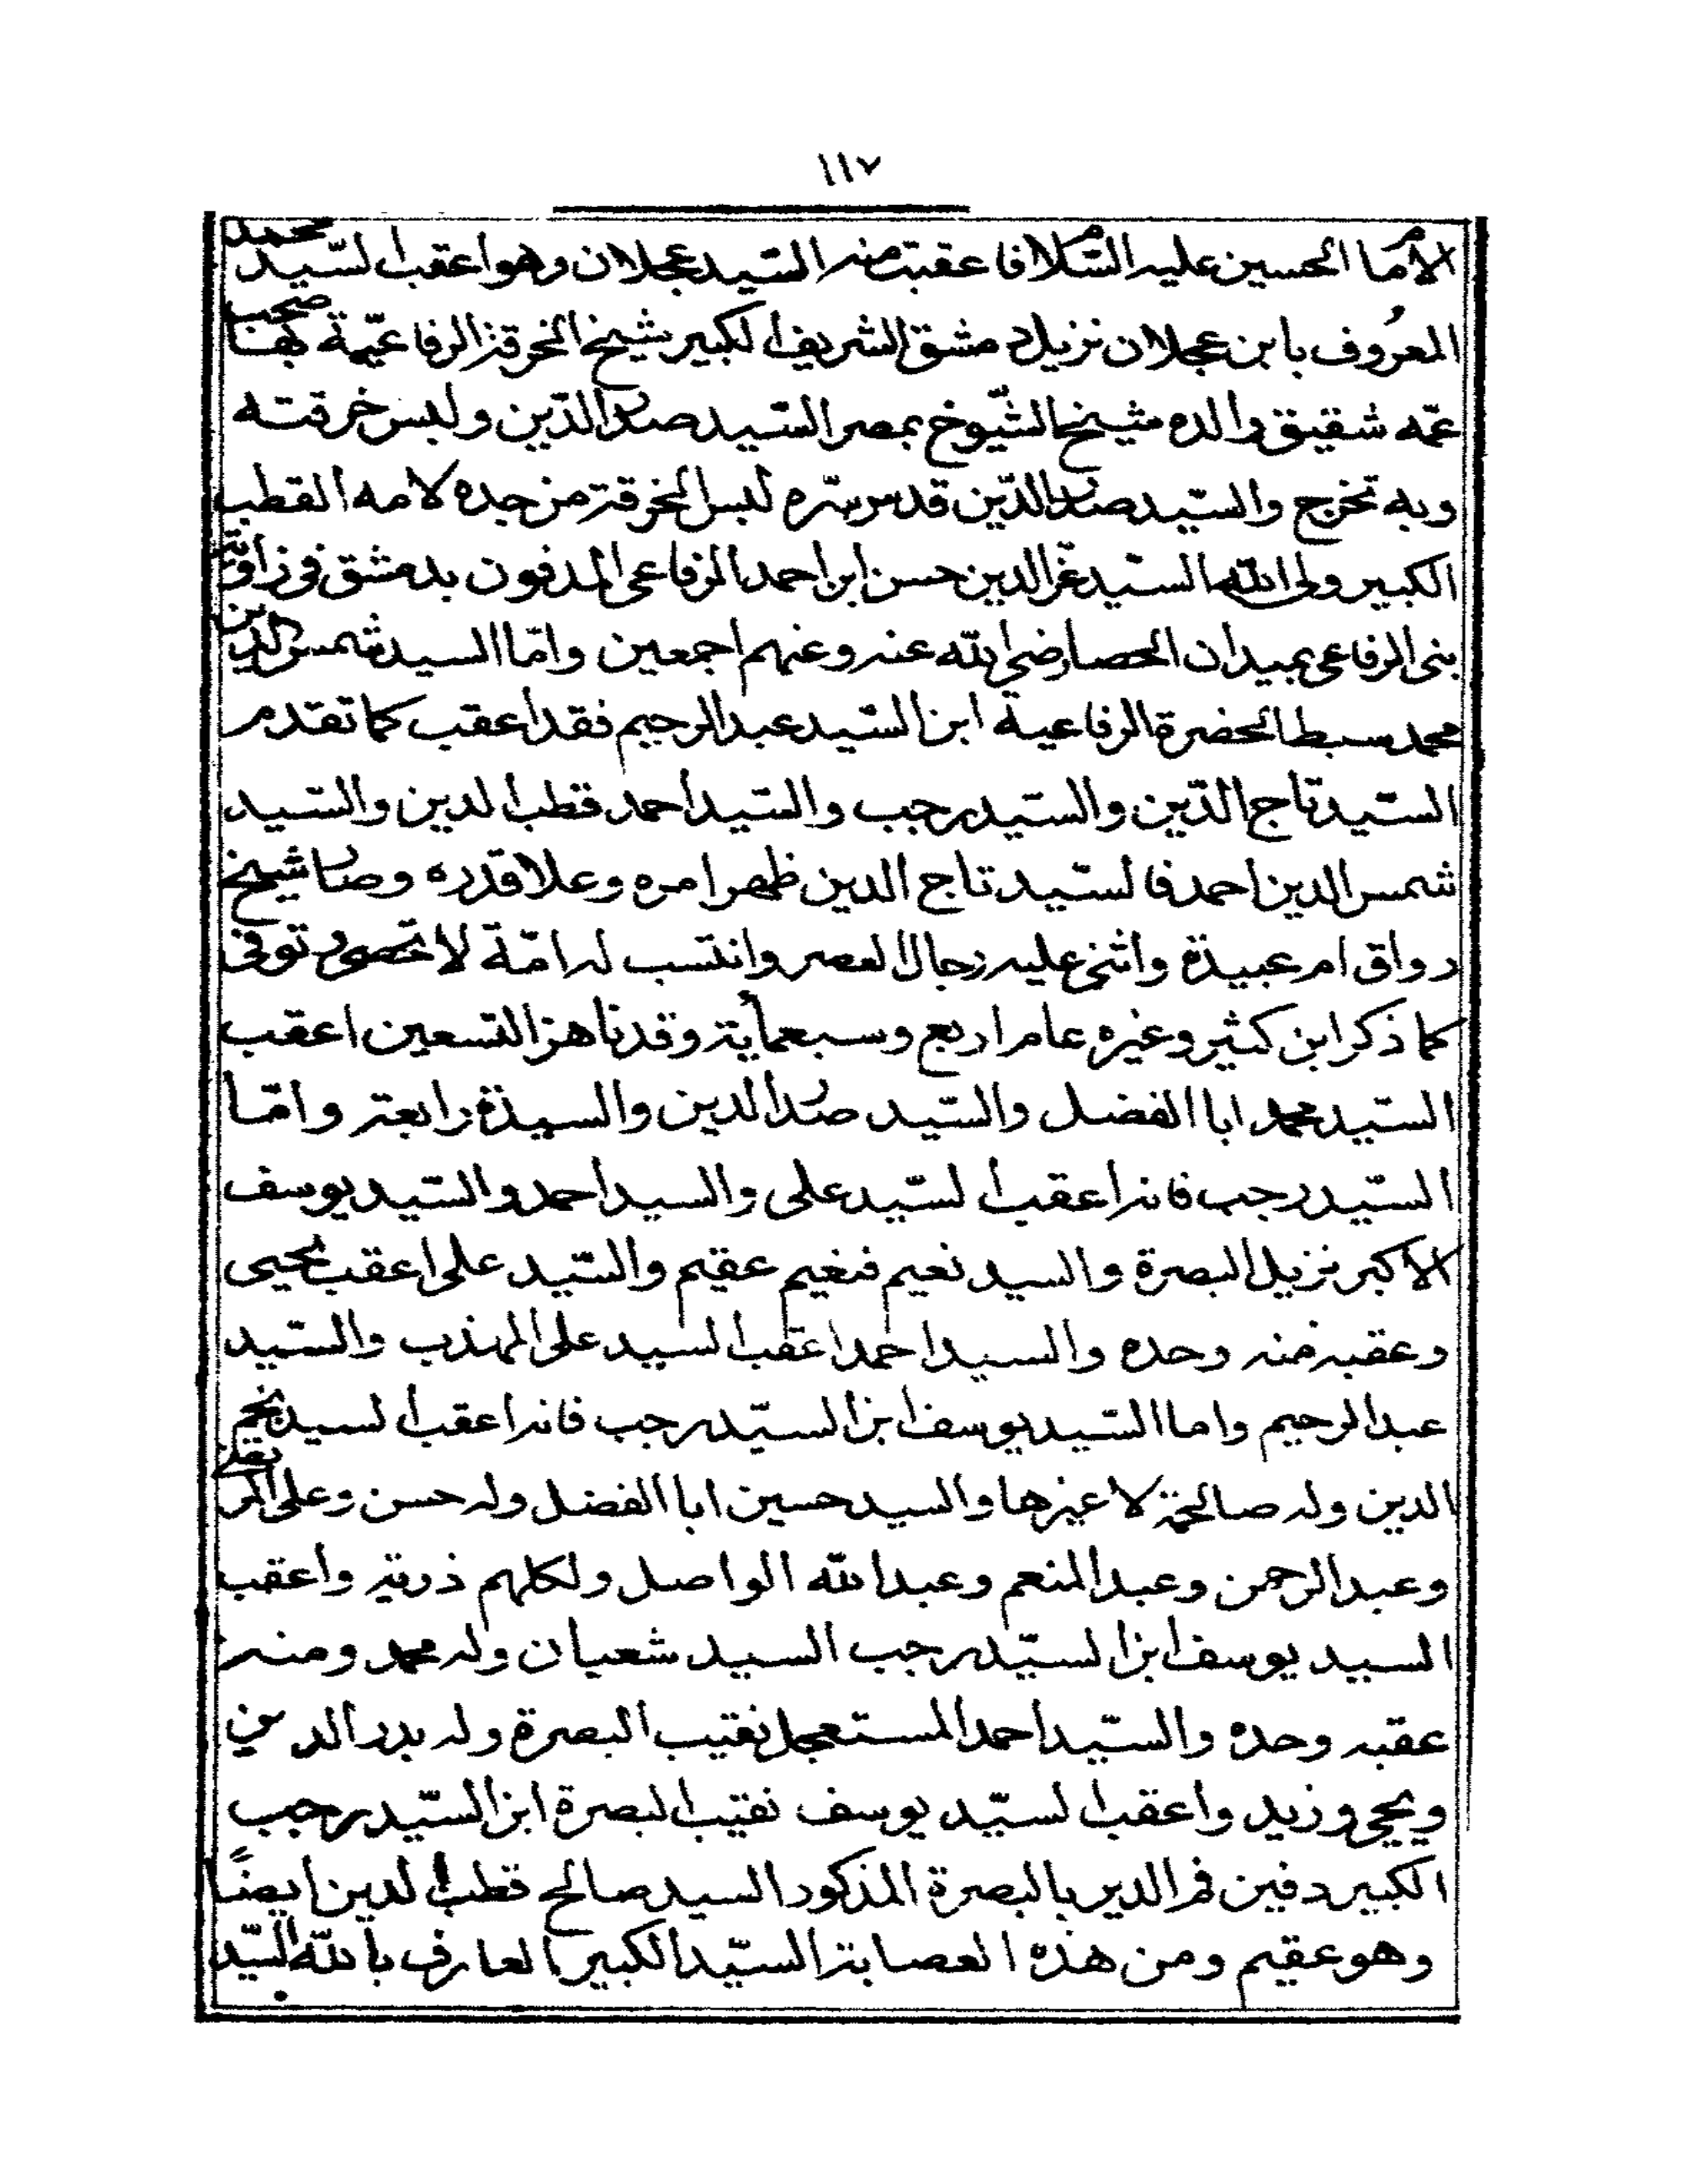 ١١٧
الامام الحسين عليه السلام فاعقبت منه السيد عجلان وهو اعقب السيد محمد
المعروف بابن عجلان نزيل دمشق الشريف الكبير شيخ الخرقة الرفاعية بها صحب
عمه شقيق والده شيخ الشيوخ بمصر السيد صدر الدين ولبس خرقته
وبه تخرج والسيد صدر الدين قدس سره لبس الخرقة من جده لامه القطب
الكبير ولى الله السيد عز الدين حسن ابن احمد الرفاعى المدفون بدمشق فى زاوية
بنى الرفاعى بميدان الحصا رضى الله عنه وعنهم اجمعين وامّا السيد شمس الدين
محمد سبط الحضرة الرفاعية ابن السّيد عبد الرحيم فقد اعقب كما تقدم
السّيد تاج الدّين والسّيد رجب والسّيد احمد قطب الدين والسّيد
شمس الدين احمد فالسّيد تاج الدين ظهر امره وعلا قدره وصار شيخ
رواق ام عبيدة واثنى عليه رجال العصر وانتسب له امّة لا تحصى وتوفى
كما ذكر ابن كثير وغيره عام اربع وسبعمأية وقد ناهز التسعين اعقب
السّيد محمد ابا الفضل والسّيد صدر الدين والسيدة رابعة وامّا
السّيد رجب فانه اعقب السّيد على والسيد احمد والسّيد يوسف
الاكبر نزيل البصرة والسيد نعيم فنعيم عقيم والسّيد على اعقب يحيى
وعقبه منه وحده والسيد احمد اعقب السيد على المهذب والسّيد
عبد الرحيم واما السّيد يوسف ابن السّيد رجب فانه اعقب السيد نجم
الدين وله صالحة لا غيرها والسيد حسين ابا الفضل وله حسن وعلى المرتقى
وعبد الرحمن وعبد المنعم وعبد الله الواصل ولكلهم ذرية واعقب
السيد يوسف ابن السّيد رجب السيد شعبان وله محمد ومنه
عقبه وحده والسّيد احمد المستعجل نقيب البصرة وله بدر الدين
ويحيى وزيد واعقب السّيد يوسف نقيب البصرة ابن السّيد رجب
الكبير دفين فم الدير بالبصرة المذكور السيد صالح قطب الدين ايضًا
وهو عقيم ومن هذه العصابة السّيد الكبير العارف بالله السّيد